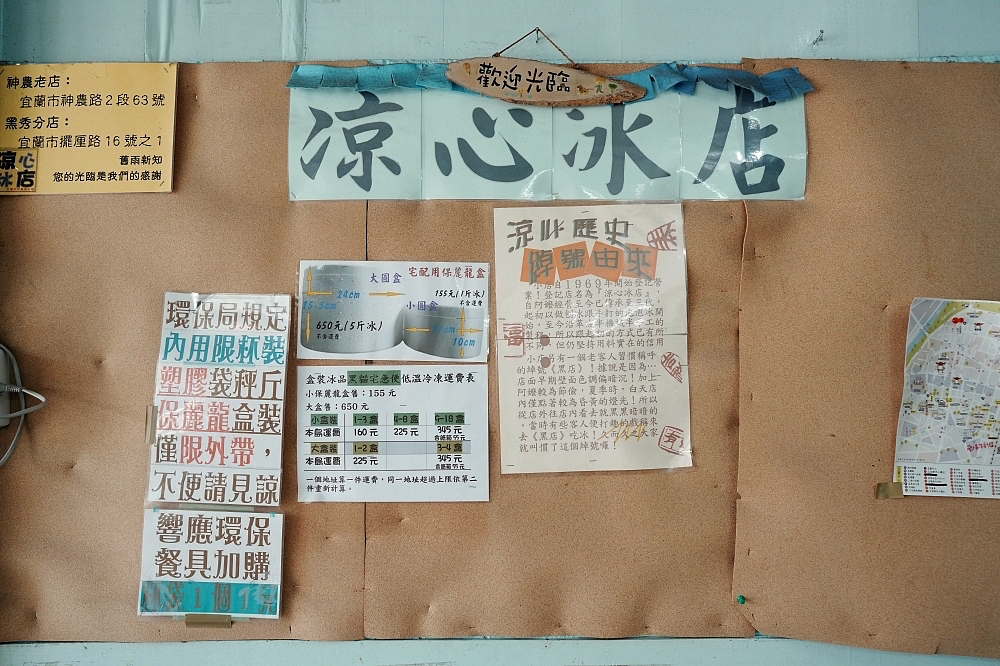 神農老店：
宜蘭市神農路2段63號
黑秀分店：
宜蘭市擺厘路16號之1
舊雨新知
您的光臨是我們的感謝
涼心
冰店
歡迎光臨
涼心冰店
環保局規定
內用限杯裝
塑膠袋秤斤
保麗龍盒裝
僅限外帶，
不便請見諒
響應環保
餐具加購
1個1
宅配用保麗龍盒
大圓盒
155元(1斤冰)
不含運費
24cm
小圓盒
15.5cm
650元(5斤冰)
不含運費
12cm
10cm
盒裝冰品黑貓宅急便低溫冷凍運費表
小保麗龍盒售：155元
大盒售：650元
小盒裝 1-3盒 4-8盒 9-18盒
本島運費 160元 225元 345元
含紙箱55元
大盒裝 1-2盒 3-4盒
本島運費 225元 345元
含紙箱55元
一個地址算一件運費，同一地址超過上限依第二
件重新計算。
涼冰歷史
綽號由來
小店自1969年開始登記營
案！登記店名為『涼心冰店』，
自阿嬤經營至今已傳承三代，
小店另有一個老客人習慣稱呼
的綽號《黑店》！據說是因為…
店面早期壁面色調偏暗沉！加上
阿嬤較為節儉，夏季時，白天店
內僅點著較為昏黃的燈光！所以
從店外往店內看去就黑黑暗暗的
，當時有些客人便打趣的戲稱來
去《黑店》吃冰！久而久之大家
就叫慣了這個綽號囉！